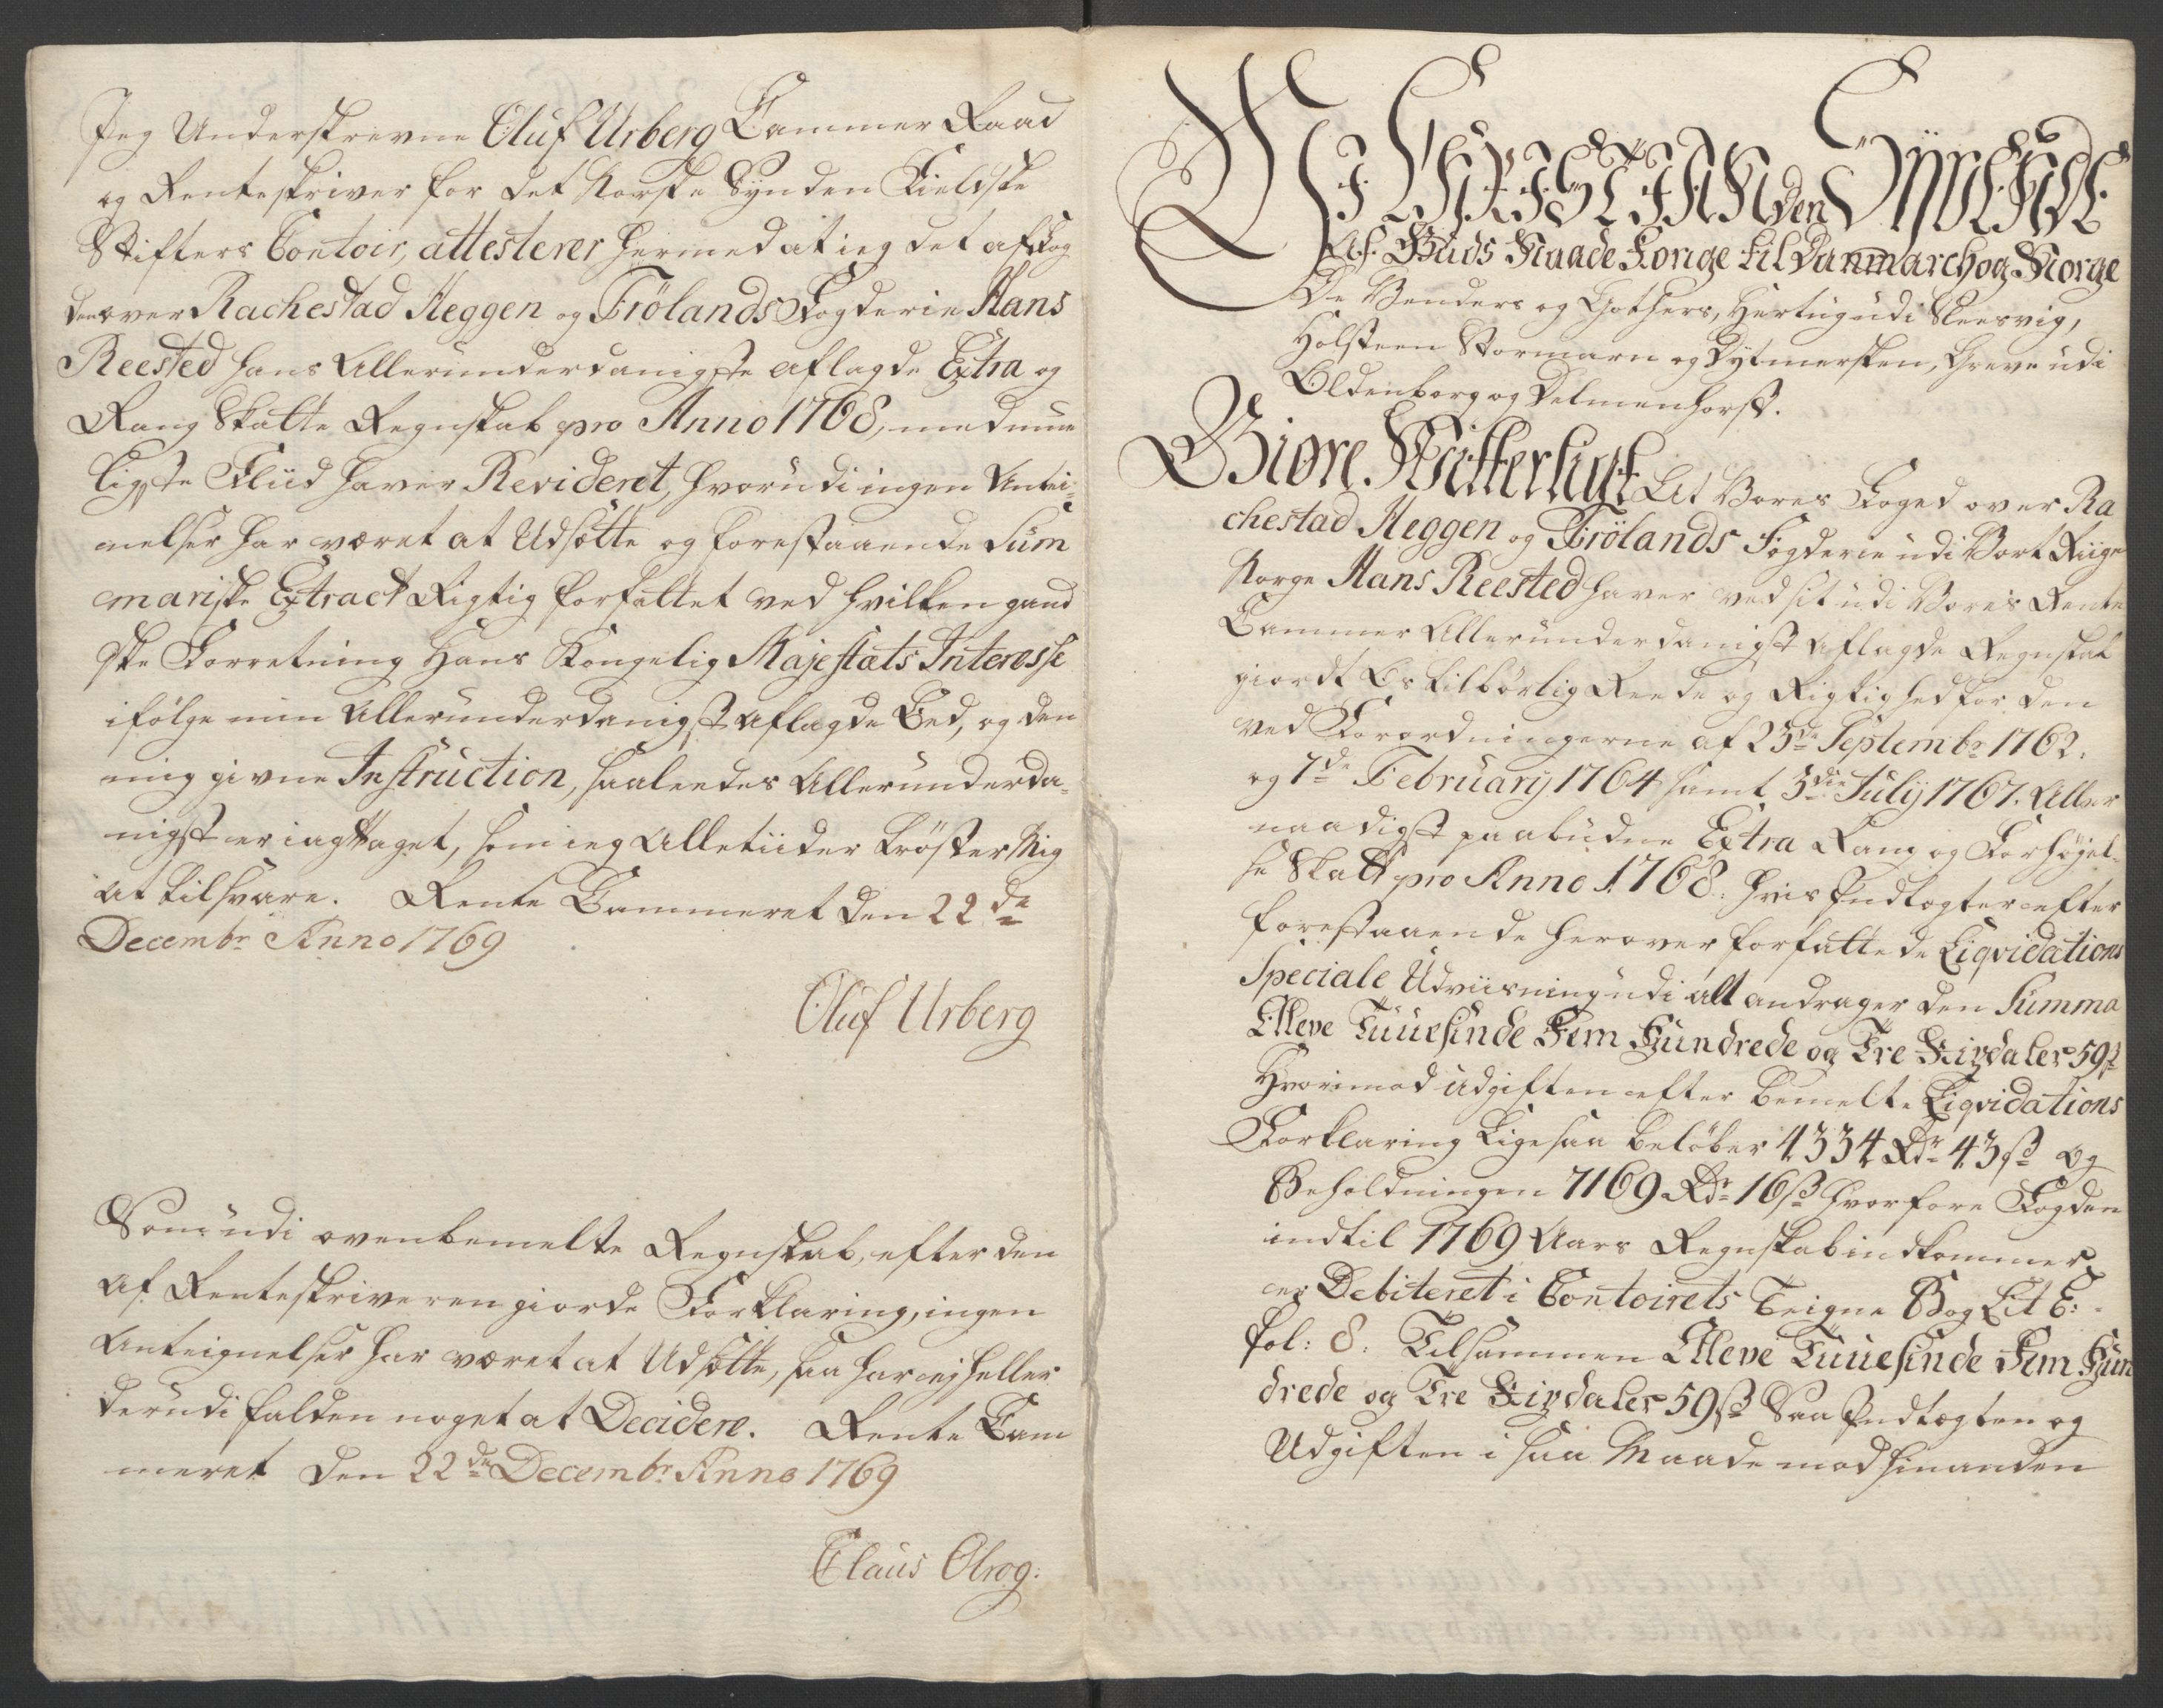 Jeg Underskrevne Oluf Urberg Cammer Raad
og Renteskriver for det Norske Synden Fieldske
Stifters Contoir, attesterer hermed at ieg det af Fog
den over Rachestad Heggen og Frölands Fogderie Hans
Reested hans Allerunderdanigste aflagde Extra og
Rang Skatte Regnskab pro Anno 1768, med mue
ligste Fliid haver Revideret, hvorudi ingen Antei-
nelser har været at Udsætte og forestaaende Sum
mariske Extract Rigtig forfattet ved hvilken gand
ske Forretning Hans Kongelig Majestæts Interesse
ifölge min Allerunderdanigst aflagde Eed, og den
mig givne Instruction, saaleedes Allerunderda-
nigst er iagttaget, som ieg Alletiider tröster Mig
at tilsvare. Rente Cammeret den 22de
Decembr Anno 1769
Oluf Urberg
Som udi ovenbemelte Regnskab, efter den
af Renteskriveren giorde Forklaring, ingen
Anteignelser har været at Udsætte, saa har ej heller
derudi falden noget at Decidere. Rente Cam
meret den 22de Decembr Anno 1769
Claus Olrog:
Vi CHRISTIAN den Syvende
Af Guds Naade Konge til Danmarch og Norge
De Venders og Gothers, Hertug udi Sleesvig,
Holsteen Stormarn og Dytmersken, Greve udi
Oldenborg og Delmenhorst.
Giøre Witterligt At Vores Foged over Ra
chestad Heggen og Frölands Fogderie udi Vort Riige
Norge Hans Reested haver ved sit udi Vores Rente
Cammer Allerunderdanigst aflagde Regnskab
giordt Os tilbörlig Reede og Rigtighed for den
ved Forordningerne af 23de Septembr 1762.
og 7de February 1764 samt 3die July 1767. Aller
naadigst paabudne Extra Rang og Forhöjel-
se Skatt pro Anno 1768. hvis Indtægter efter
forestaaende herover forfattede Liqvidations
Speciale Udviisning udi alt andrager den Summa
Elleve Tuusinde Fem Hundrede og Tre Rixdaler 59 ß
Hvorimod Udgiften efter bemelte Liqvidations
Forklaring Ligesaa belöber 4334 Rdr 43 ß og
Beholdningen 7169 Rdr 16 ß hvorfore Fogden
indtil 1769 Aars Regnskab indkommer
er Debiteret i Contoirets Teigne Bog Lit E:
fol: 8. Tilsammen Elleve Tuusinde Fem Hun
drede og Tre Rixdaler 59 ß Saa Indtægten og
Udgiften i saa Maade mod hinanden